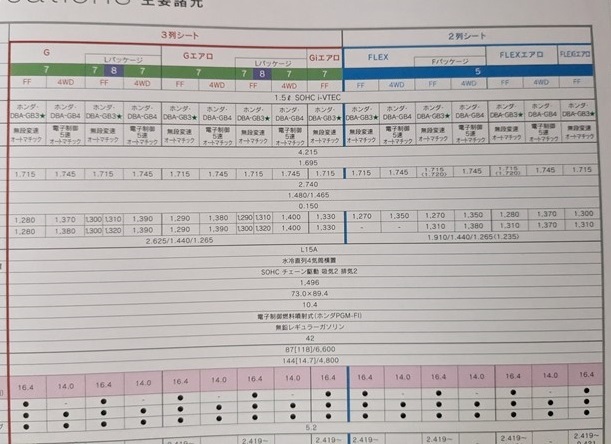 主要諸元
3列シート 2列シート
G Gエアロ Giエアロ FLEX FLEXエアロ
Lパッケージ Lパッケージ Fパッケージ
7 7 8 7 7 7 8 7 7 5
FF 4WD FF 4WD FF 4WD FF 4WD FF FF 4WD FF 4WD FF 4WD FF
1.5ℓ SOHC i-VTEC
ホンダ・DBA-GB3★ ホンダ・DBA-GB4 ホンダ・DBA-GB3★ ホンダ・DBA-GB4 ホンダ・DBA-GB3★ ホンダ・DBA-GB4 ホンダ・DBA-GB3★ ホンダ・DBA-GB4 ホンダ・DBA-GB3★ ホンダ・DBA-GB3★ ホンダ・DBA-GB4 ホンダ・DBA-GB3★ ホンダ・DBA-GB4 ホンダ・DBA-GB3★ ホンダ・DBA-GB4 ホンダ・DBA-GB3★
無段変速オートマチック 電子制御5速オートマチック 無段変速オートマチック 電子制御5速オートマチック 無段変速オートマチック 電子制御5速オートマチック 無段変速オートマチック 電子制御5速オートマチック 無段変速オートマチック 無段変速オートマチック 電子制御5速オートマチック 無段変速オートマチック 電子制御5速オートマチック 無段変速オートマチック 電子制御5速オートマチック 無段変速オートマチック
4.215
1.695
1.715 1.745 1.715 1.745 1.715 1.745 1.715 1.745 1.715 1.715 1.745 1.715(1.720) 1.745 1.715(1.720) 1.745 1.715
2.740
1.480/1.465
0.150
1,280 1,370 1,300 1,310 1,390 1,290 1,380 1,290 1,310 1,400 1,330 1,270 1,350 1,270 1,350 1,280 1,370 1,300
1,280 1,380 1,300 1,320 1,390 1,290 1,380 1,300 1,320 1,400 1,330 - - 1,310 1,380 1,310 1,370 1,310
2.625/1.440/1.265 1.910/1.440/1.265(1.235)
L15A
水冷直列4気筒横置
SOHC チェーン駆動 吸気2 排気2
1,496
73.0×89.4
10.4
電子制御燃料噴射式(ホンダPGM-FI)
無鉛レギュラーガソリン
42
87[118]/6,600
144[14.7]/4,800
16.4 14.0 16.4 14.0 16.4 14.0 16.4 14.0 16.4 16.4 14.0 16.4 14.0 16.4 14.0 16.4
5.2
2.419~ 2.419~ 2.419~ 2.419~